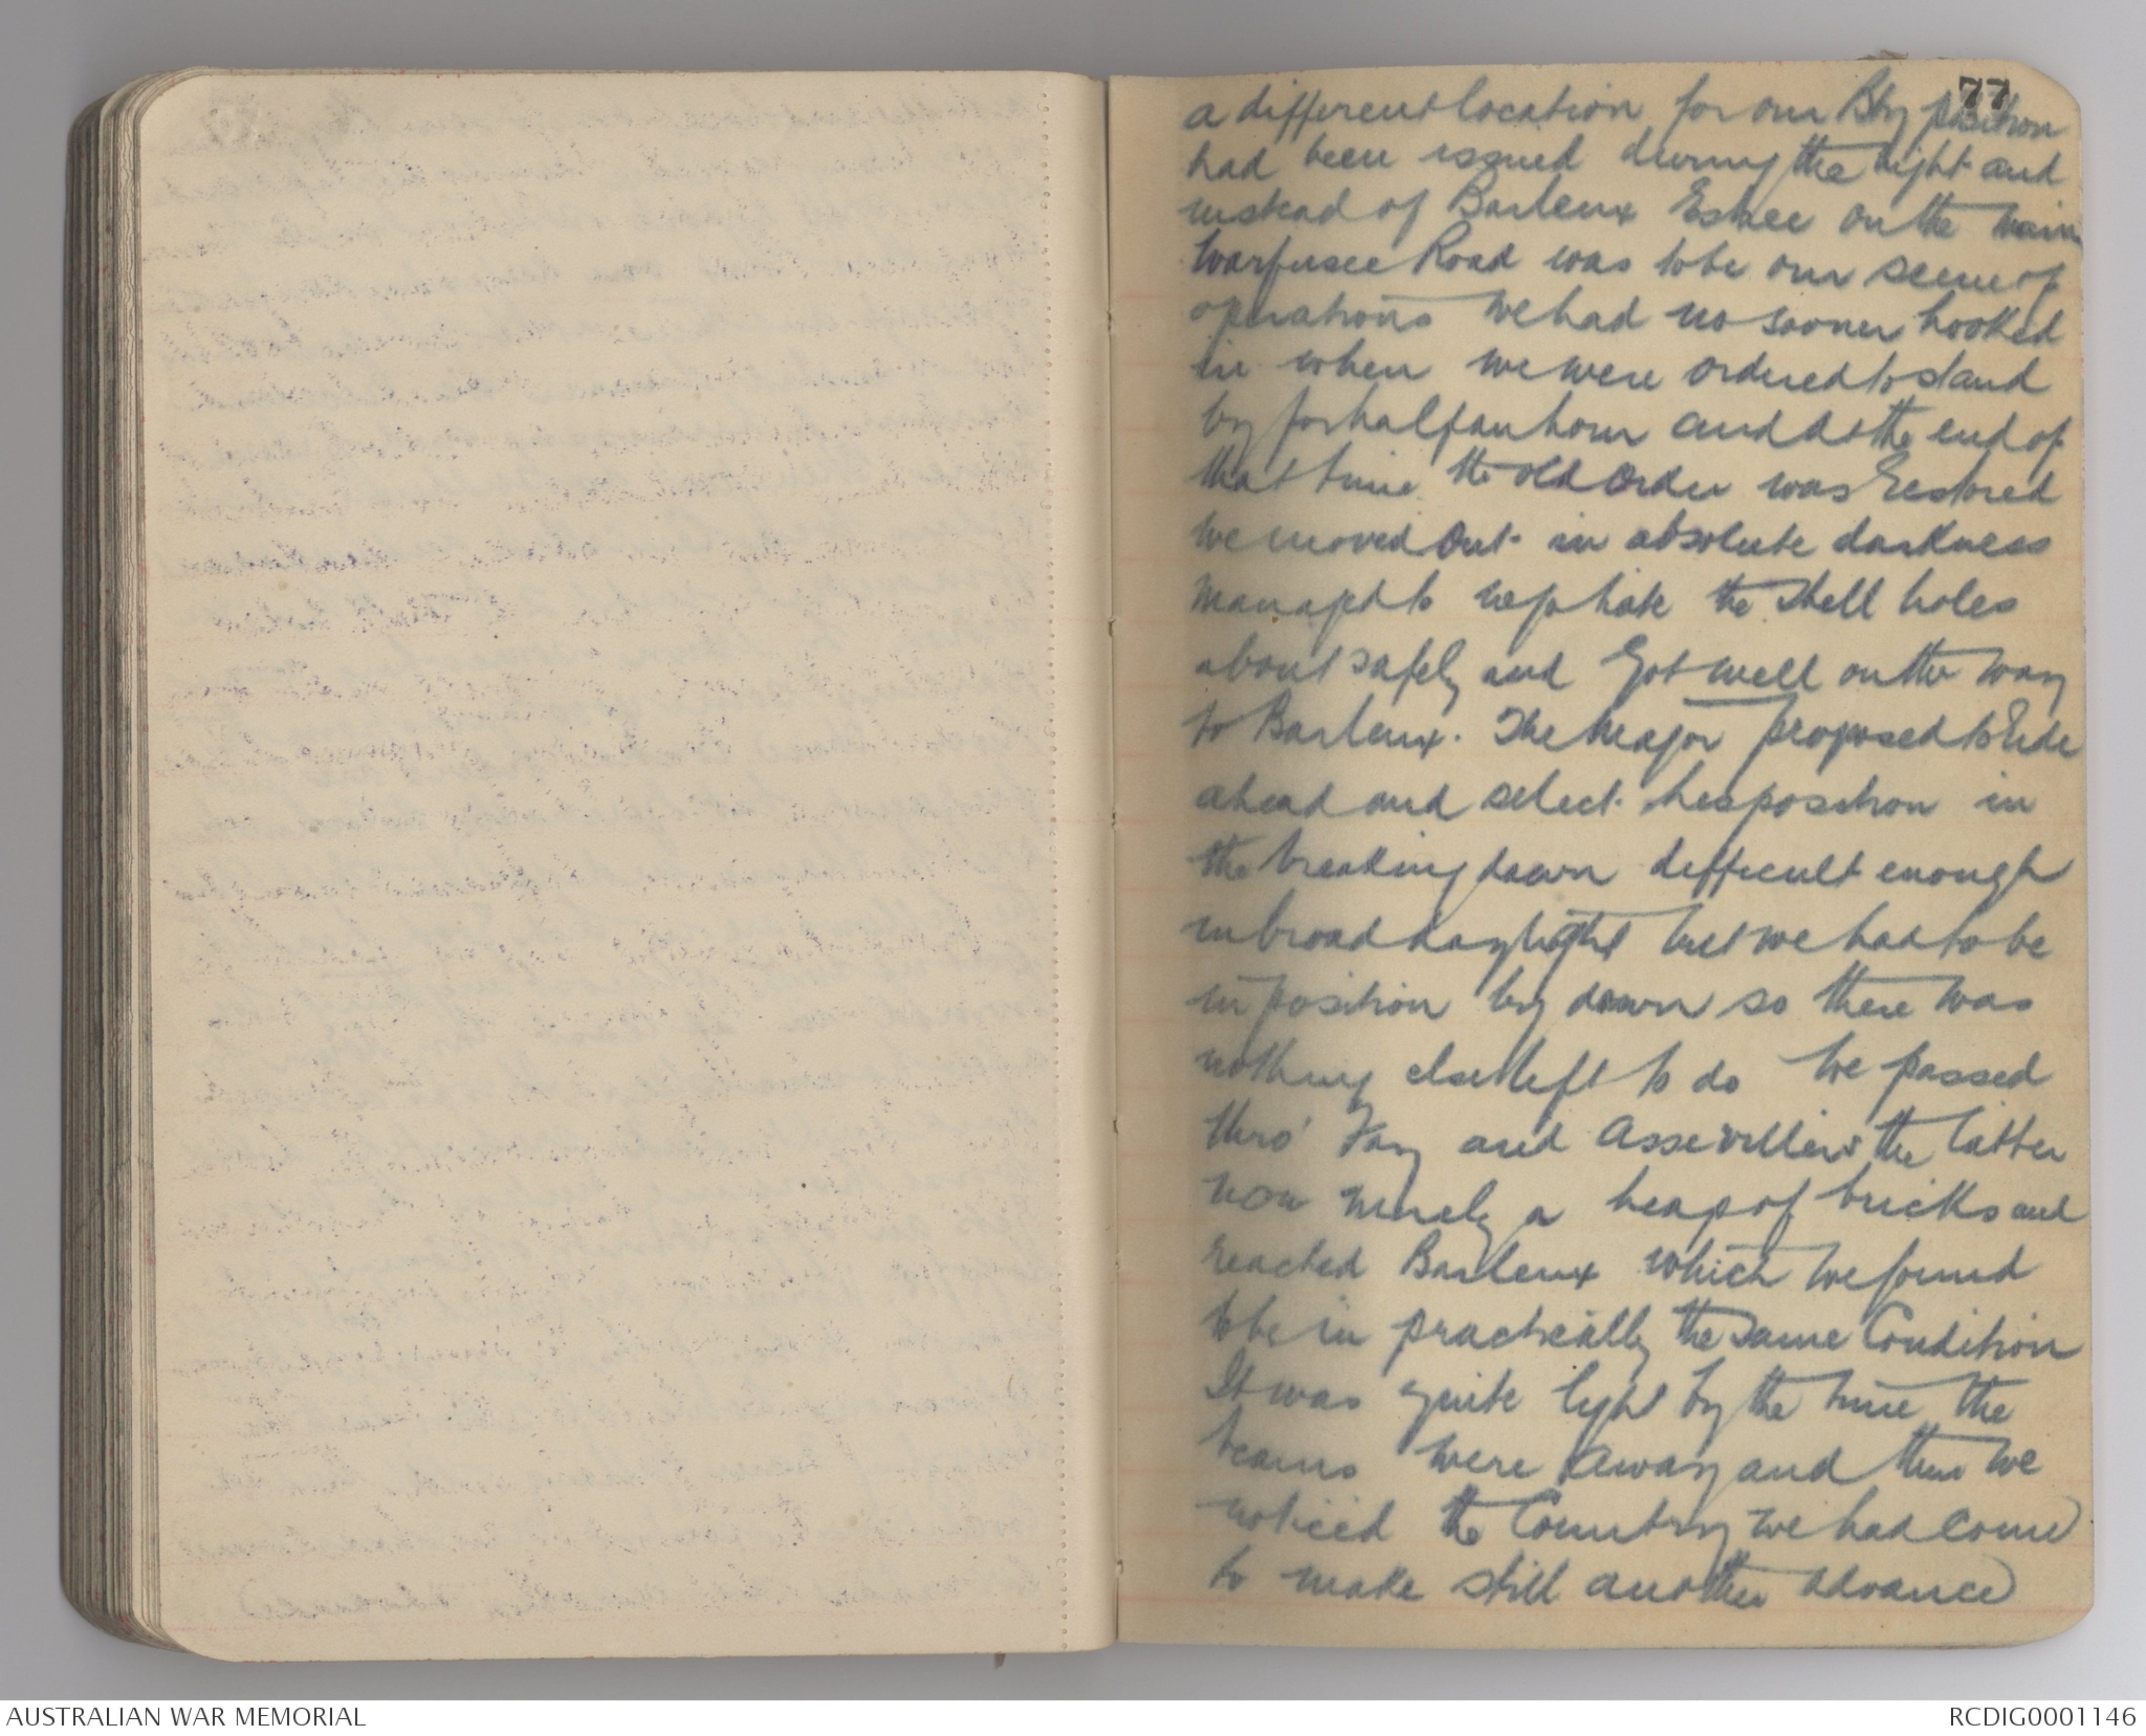 77
a different location for our Bty position
had been issued during the night and
instead of Barleux Estree on the main
Warfusee Road was to be our scene of
operations We had no sooner hooked
in when we were ordered to stand
by for half an hour and at the end of
that time the old order was restored
We moved out in absolute darkness
managed to negotiate the shell holes
about safely and got well on the way
to Barleux. The Major proposed to ride
ahead and select his position in
the breaking dawn difficult enough
in broad daylight but we had to be
in position by dawn so there was
nothing else left to do We passed
thro' Fay and Assevillers the latter
now merely a heap of bricks and
reached Barleux which we found
to be in practically the same Condition
It was quite light by the time the
teams were away and then we
noticed the Country we had come
to make still another advance
AUSTRALIAN WAR MEMORIAL
RCDIG0001146